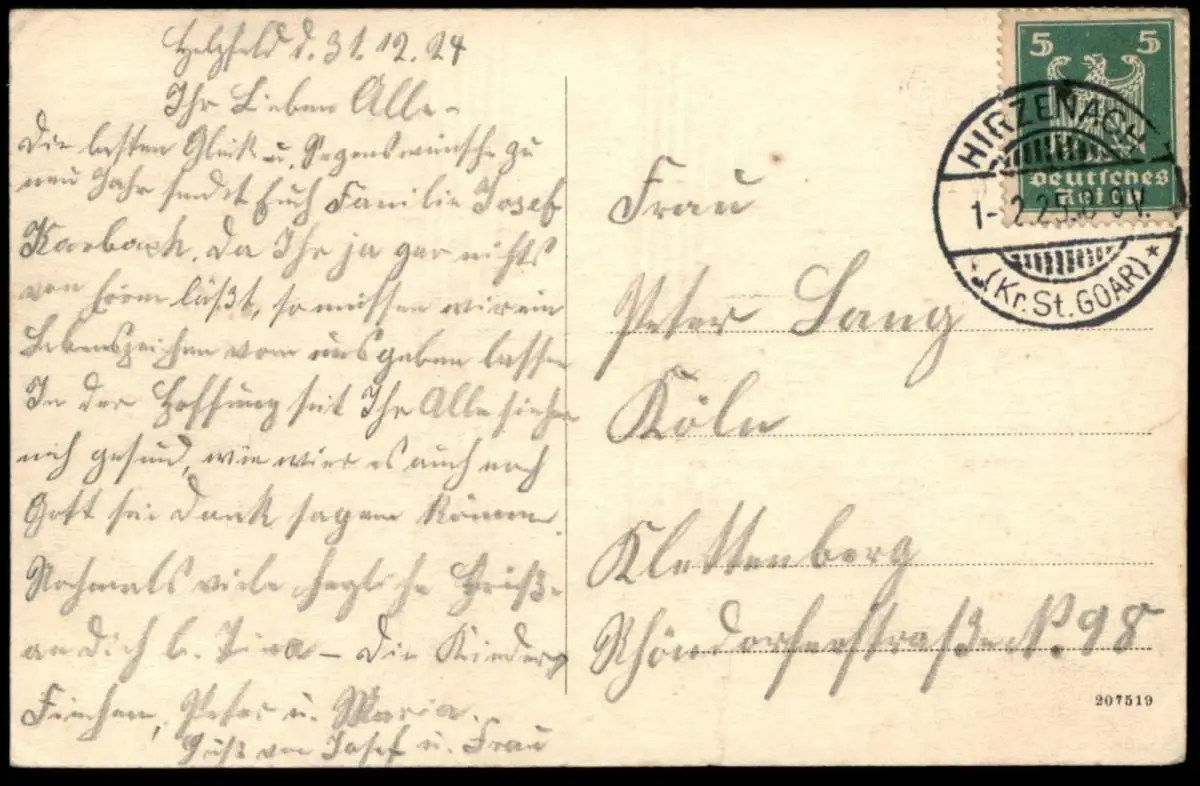 d. 31.12.24
Ihr Lieben Alle-
Die besten Glück u. Segenswünsche zu
neu Jahr sendet Euch Familie Josef
Karbach. Da Ihr ja gar nichts
von hören läßt, so müssen wir ein
Lebenszeichen vom uns geben lassen
In der Hoffnung seit Ihr Alle
noch gesund, wie wier es auch noch
Gott sei Dank sagen können.
Nochmals viele herzliche Grüße
an Dich l. - Die Kinder
Finchen, Peter u. Maria.
Gruß von Josef u. Frau
Frau
Peter Lang
Köln
Klettenberg
Rhöndorferstraße N. 98
5 5
Deutsches
Reich
HIRZENACH
1-
(Kr. St. GOAR)
207519